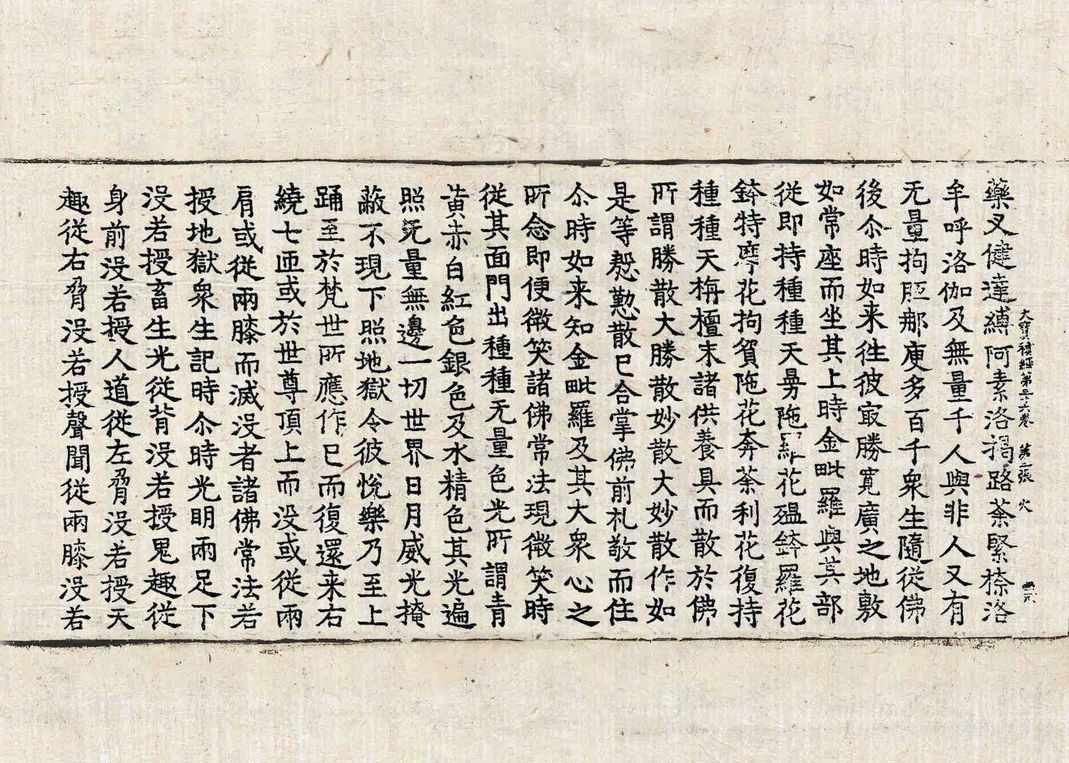 大寶積經第三十六卷 第二張 火
藥叉健達縛阿素洛揭路荼緊捺洛
牟呼洛伽及無量千人與非人又有
无量拘胝那庾多百千衆生隨從佛
後尒時如来往彼㝡勝寬廣之地敷
如常座而坐其上時金毗羅與其部
從即持種種天曼陁羅花殟鉢羅花
鉢特摩花拘貿陁花奔荼利花復持
種種天栴檀末諸供養具而散於佛
所謂勝散大勝散妙散大妙散作如
是等慇懃散已合掌佛前礼敬而住
尒時如来知金毗羅及其大衆心之
所念即便微笑諸佛常法現微笑時
從其面門出種種无量色光所謂青
黃赤白紅色銀色及水精色其光遍
照无量無邊一切世界日月威光掩
蔽不現下照地獄令彼悅樂乃至上
踊至於梵世所應作已而復還来右
繞七迊或於世尊頂上而没或從兩
肩或從兩膝而滅没者諸佛常法若
授地獄衆生記時尒時光明兩足下
没若授畜生光從背没若授鬼趣從
身前没若授人道從左脅没若授天
趣從右脅没若授聲聞從兩膝没若